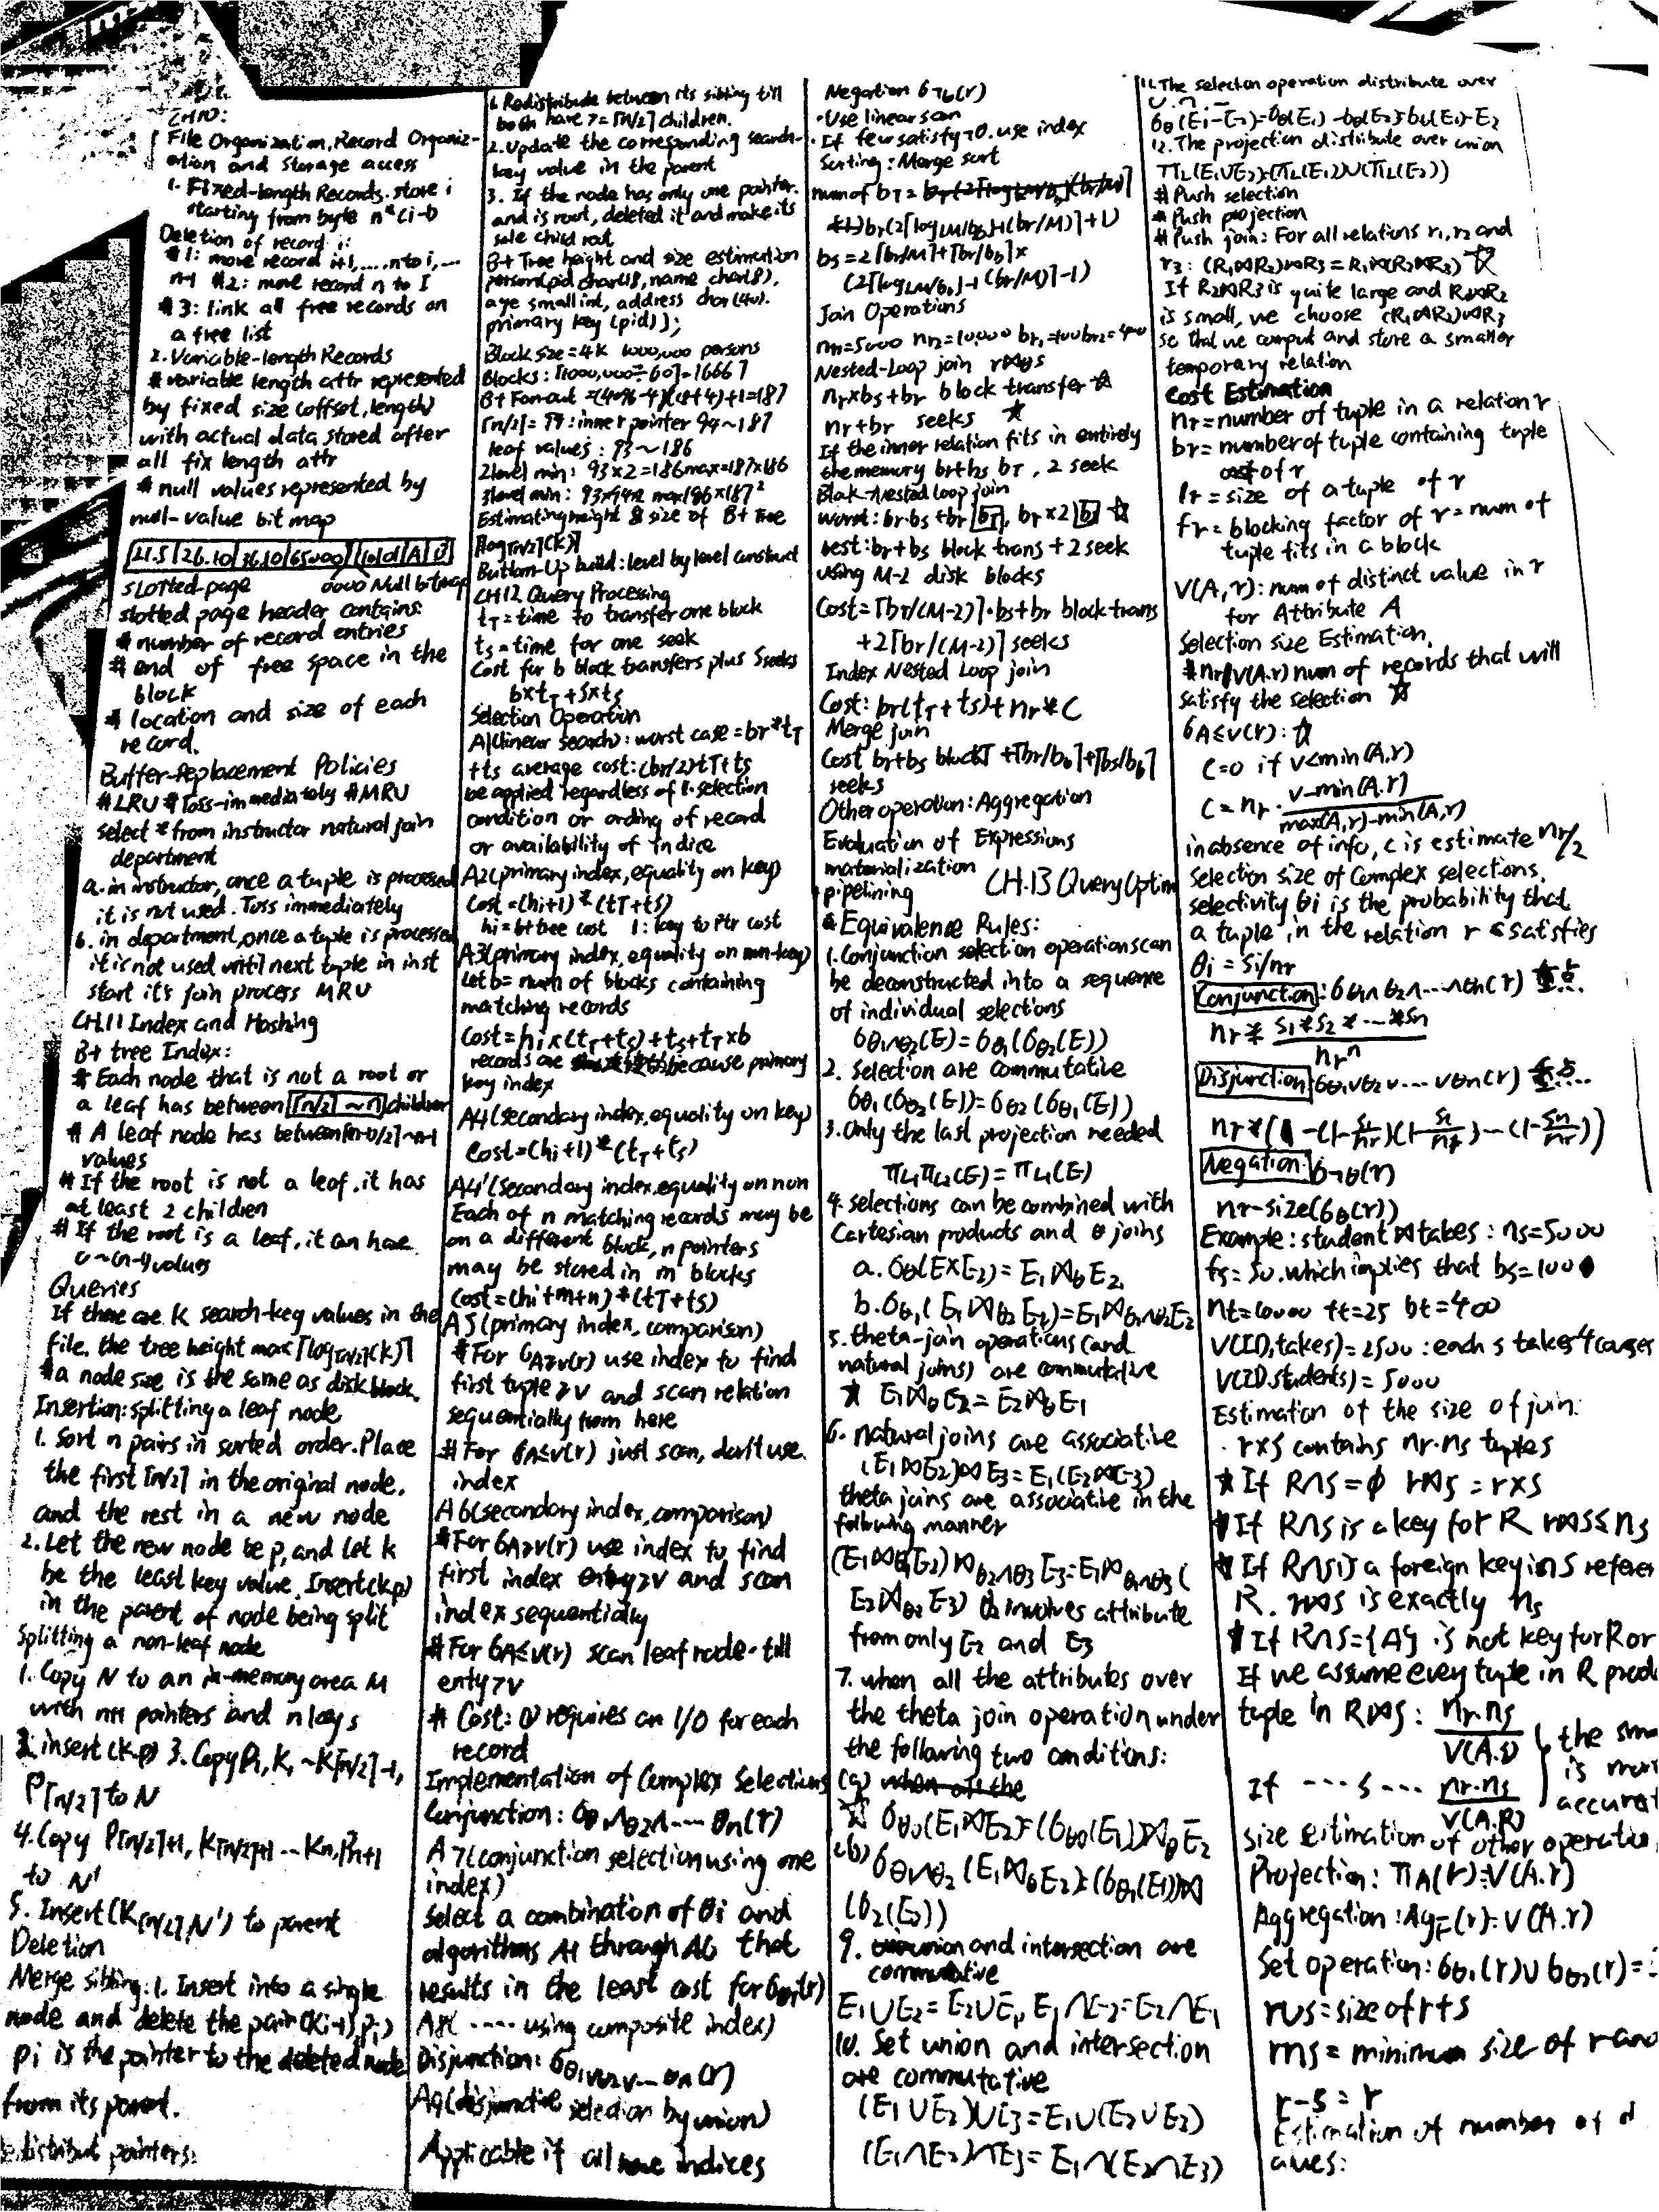 CH10:
File Organization, Record Organiz-
ation and Storage access
1. Fixed-length Records. store i
starting from byte n*(i-1)
Deletion of record i:
#1: move record i+1,....n to i,...
n-1 #2: move record n to I
#3: link all free records on
a free list
2. Variable-length Records
# variable length attr represented
by fixed size (offset, length)
with actual data stored after
all fix length attr
# null values represented by
null-value bit map
21.5|26.10|36.10|65000
slotted-page 0000 Null bitmap
slotted page header contains:
# number of record entries
# end of free space in the
block
# location and size of each
record.
Buffer-Replacement Policies
#LRU #Toss-immediately #MRU
select * from instructor natural join
department
a. in instructor, once a tuple is processed
it is not used. Toss immediately
b. in department, once a tuple is processed
it is not used until next tuple in inst
start it's join process MRU
CH.11 Index and Hashing
B+ tree Index:
# Each node that is not a root or
a leaf has between ⌈n/2⌉ ~ n children
# A leaf node has between ⌈(n-1)/2⌉~n-1
values
# If the root is not a leaf, it has
at least 2 children
# If the root is a leaf, it can have
0~(n-1) values
Queries
If there are K search-key values in the
file, the tree height max ⌈log⌈n/2⌉(K)⌉
# a node size is the same as disk block.
Insertion: splitting a leaf node
1. Sort n pairs in sorted order. Place
the first ⌈n/2⌉ in the original node.
and the rest in a new node
2. Let the new node be p, and let k
be the least key value. Insert (k,p)
in the parent of node being split
Splitting a non-leaf node
1. Copy N to an in-memory area M
with n+1 pointers and n keys
2. insert (k,p) 3. Copy P1, K1 ~ K⌈n/2⌉-1,
P⌈n/2⌉ to N
4. Copy P⌈n/2⌉+1, K⌈n/2⌉+1 ... Kn, Pn+1
to N'
5. Insert (K⌈n/2⌉, N') to parent
Deletion
Merge sibling: 1. Insert into a single
node and delete the pair (Ki-1, Pi)
pi is the pointer to the deleted node
from its parent.
pointers:
1. Redistribute between its sibling till
both have >= ⌈n/2⌉ children.
2. Update the corresponding search-
key value in the parent
3. If the node has only one pointer.
and is root, deleted it and make its
sole child root
B+ Tree height and size estimation
person(pid char(18), name char(8),
age smallint, address char(40),
primary key (pid));
Block size = 4K 1000,000 persons
Blocks: ⌈1000,000÷60⌉=16667
B+ Fan-out =(4096-4)/(18+4)+1=187
⌈n/2⌉= 94: inner pointer 94~187
leaf values: 93~186
2level min: 93×2=186 max=187×186
3level min: 93×94×2 max 186×187²
Estimating height & size of B+ Tree
⌈log⌈n/2⌉(K)⌉
Buttom-Up build: level by level construct
CH12 Query Processing
tT = time to transfer one block
ts = time for one seek
Cost for b block transfers plus S seeks
b×tT+S×ts
Selection Operation
A1(linear search): worst case = br*tT
+ts average cost: (br/2)tT+ts
be applied regardless of 1. selection
condition or ording of record
or availability of indice
A2(primary index, equality on key)
Cost=(hi+1)*(tT+ts)
hi=b+tree cost 1: key to Ptr cost
A3(primary index, equality on non-key)
Let b= num of blocks containing
matching records
Cost=hi×(tT+ts)+ts+tT×b
records are because primary
key index
A4(secondary index, equality on key)
Cost=(hi+1)*(tT+ts)
A4'(secondary index, equality on non
Each of n matching records may be
on a different block, n pointers
may be stored in m blocks
Cost=(hi+m+n)*(tT+ts)
A5(primary index, comparison)
#For σA≥v(r) use index to find
first tuple ≥v and scan relation
sequentially from here
#For σA≤v(r) just scan, don't use
index
A6(secondary index, comparison)
#For σA≥v(r) use index to find
first index entry≥v and scan
index sequentially
#For σA≤v(r) scan leaf node till
enty>v
# Cost: requires an I/O for each
record
Implementation of Complex Selections
Conjunction: σθ1∧θ2∧...θn(r)
A7(conjunction selection using one
index)
Select a combination of θi and
algorithms A1 through A6 that
results in the least cost for σθi(r)
A8( .... using composite index)
Disjunction: σθ1∨θ2∨...θn(r)
A9(disjunctive selection by union)
Applicable if all have indices
Negation σ¬θ(r)
·Use linear scan
·If few satisfy ¬θ. use index
Sorting: Merge sort
num of bT =
br(2⌈logM/bb⌉-1(br/M)⌉+1)
bs=2⌈br/M⌉+⌈br/bb⌉×
(2⌈logM/bb⌉-1(br/M)⌉-1)
Join Operations
nr1=5000 nr2=10,000 br1=100 br2=400
Nested-Loop join r⋈θs
nr×bs+br block transfer ☆
nr+br seeks ☆
If the inner relation fits in entirely
the memory br+bs bT, 2 seek
Block-Nested loop join
worst: br·bs+br bT, br×2 bs ☆
best: br+bs block trans + 2 seek
using M-2 disk blocks
Cost=⌈br/(M-2)⌉·bs+br block trans
+2⌈br/(M-2)⌉ seeks
Index Nested Loop join
Cost: br(tT+ts)+nr*C
Merge join
Cost br+bs blockT +⌈br/bb⌉+⌈bs/bb⌉
seeks
Other operation: Aggregation
Evaluation of Expressions
materialization
pipelining CH.13 Query Optim
# Equivalence Rules:
1. Conjunction selection operation scan
be deconstructed into a sequence
of individual selections
σθ1∧θ2(E)=σθ1(σθ2(E))
2. Selection are commutative
σθ1(σθ2(E))=σθ2(σθ1(E))
3. Only the last projection needed
πL1πL2(E)=πL1(E)
4. selections can be combined with
Cartesian products and θ joins
a. σθ(E×E2)=E1⋈θE2
b. σθ1(E1⋈θ2E2)=E1⋈θ1∧θ2E2
5. theta-join operations (and
natural joins) are commutative
★ E1⋈θE2=E2⋈θE1
6. natural joins are associative
(E1⋈E2)⋈E3=E1(E2⋈E3)
theta joins are associative in the
following manner
(E1⋈θ1E2)⋈θ2∧θ3E3=E1⋈θ1∧θ3(
E2⋈θ2E3) θ2 involves attribute
from only E2 and E3
7. when all the attributes over
the theta join operation under
the following two conditions:
(a) when all the
☆ σθ0(E1⋈E2)=(σθ0(E1))⋈θE2
(b) σθ1∧θ2(E1⋈θE2)=(σθ1(E1))⋈
(θ2(E2))
9. union and intersection are
commutative
E1∪E2=E2∪E1, E1∩E2=E2∩E1
10. Set union and intersection
are commutative
(E1∪E2)∪E3=E1∪(E2∪E2)
(E1∩E2)∩E3=E1∩(E2∩E3)
11. The selection operation distribute over
∪, ∩, -
σθ(E1-E2)=σθ(E1)-σθ(E2)=σθ(E1)-E2
12. The projection distribute over union
πL(E1∪E2)=(πL(E1))∪(πL(E2))
# Push selection
# Push projection
# Push join: For all relations r1, r2 and
r3: (R1⋈R2)⋈R3=R1⋈(R2⋈R3) ☆
If R2⋈R3 is quite large and R1⋈R2
is small, we choose (R1⋈R2)⋈R3
so that we comput and store a smaller
temporary relation
Cost Estimation
nr=number of tuple in a relation r
br=number of tuple containing tuple
of r
lr=size of a tuple of r
fr=blocking factor of r=num of
tuple fits in a block
V(A,r): num of distinct value in r
for Attribute A
Selection size Estimation.
#nr/V(A.r) num of records that will
satisfy the selection ☆
σA≤v(r): ☆
C=0 if v<min(A,r)
C=nr· v-min(A.r)/max(A,r)-min(A,r)
in absence of info, c is estimate nr/2
Selection size of Complex selections.
selectivity θi is the probability that
a tuple in the relation r satisfies
θi = Si/nr
Conjunction: σθ1∧θ2∧...∧θn(r)
nr* S1*S2*...*Sn/nrⁿ
Disjunction: σθ1∨θ2∨...∨θn(r)
nr*(1-(1-S1/nr)(1-S2/nr)...(1-Sn/nr))
Negation: σ¬θ(r)
nr-size(σθ(r))
Example: student⋈takes: ns=5000
fs=50. which implies that bs=100
nt=10000 ft=25 bt=400
V(ID,takes)=2500: each s takes 4 courses
V(ID.students)=5000
Estimation of the size of join:
·r×s contains nr·ns tuples
★If R∩S=∅ r⋈s=r×s
★If R∩S is a key for R r⋈s≤ns
★If R∩S is a foreign key in S refere
R. r⋈s is exactly ns
★If R∩S={A} is not key for R or
If we assume every tuple in R produ
tuple in R⋈S: nr.ns/V(A.s)
the sma
is more
accurat
If ...s... nr.ns/V(A.R)
size estimation of other operatio
Projection: πA(r)=V(A.r)
Aggregation: AgF(r)=V(A.r)
Set operation: σθ1(r)∪σθ2(r)=
r∪s=size of r+s
r∩s=minimum size of r and
r-s=r
Estimation of number of d
alues: